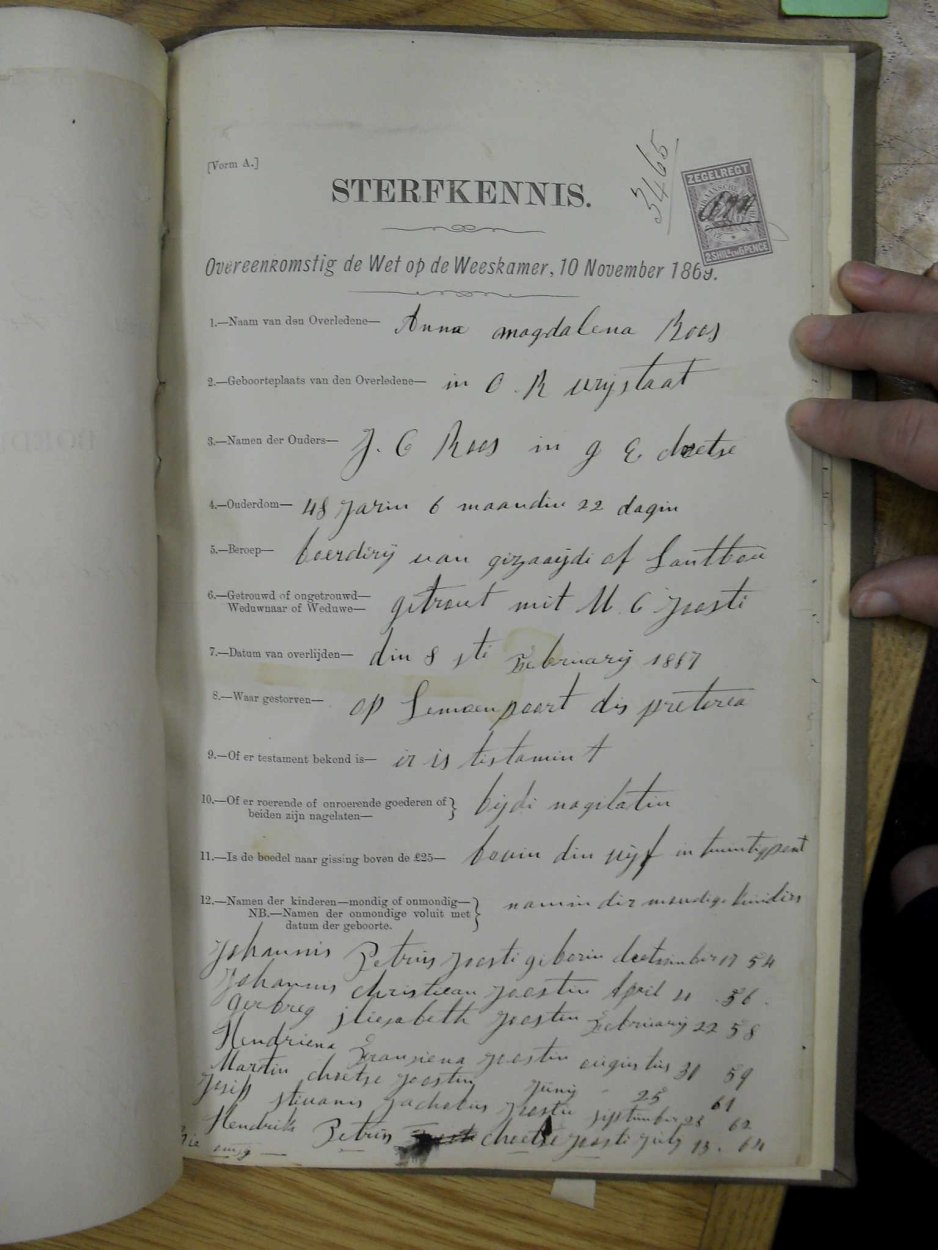 [Vorm A.]
3465
ZEGELREGT
2 SHILLS EN 6 PENCE
STERFKENNIS.
Overeenkomstig de Wet op de Weeskamer, 10 November 1869.
1.—Naam van den Overledene— Anna magdalena Roos
2.—Geboorteplaats van den Overledene— in O. R vrijstaat
3.—Namen der Ouders— J. C Roos in g E
4.—Ouderdom— 48 jarin 6 maandin 22 dagin
5.—Beroep— boerdirij van gizaaijdi of Lantbou
6.—Getrouwd of ongetrouwd—
Weduwnaar of Weduwe— gitrout mit M C joosti
7.—Datum van overlijden— din 8 sti Februarij 1887
8.—Waar gestorven— op Lemoenpoort dis pretorea
9.—Of er testament bekend is— ir is tistamint
10.—Of er roerende of onroerende goederen of
beiden zijn nagelaten—} bijdi nagilatin
11.—Is de boedel naar gissing boven de £25— bovin din vijf in twintig pont
12.—Namen der kinderen—mondig of onmondig—
NB.—Namen der onmondige voluit met
datum der geboorte.} namin dir mondige kindirs
Johannis Petrus joosti giborin deetsimber 17 54
Johannis christiean joostin April 21 56.
gerbreg jliesabeth joostin Februarij 22 58
Hendriena Fransiena joostin augustus 31 59
Martin choetse joostin junij 25 61
Josip stivanus jachobus joostie september 28 62
Hendrik Petrus choetse joosti julij 13. 64